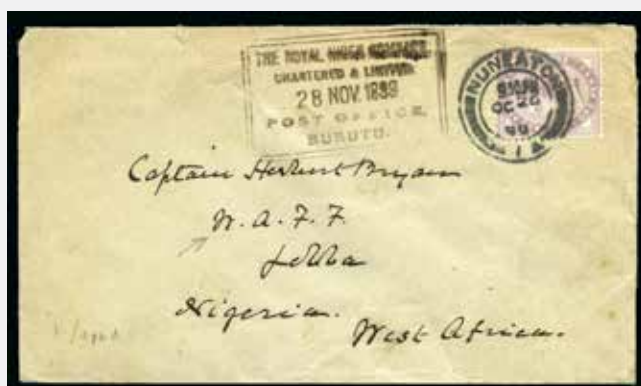 THE ROYAL NIGER COMPANY,
CHARTERED & LIMITED
28 NOV. 1899
POST OFFICE,
BURUTU.
NUNEATON
OC 26
99
Captain Herbert Bryan
W. A. F. F.
Jebba
Nigeria.
West Africa.